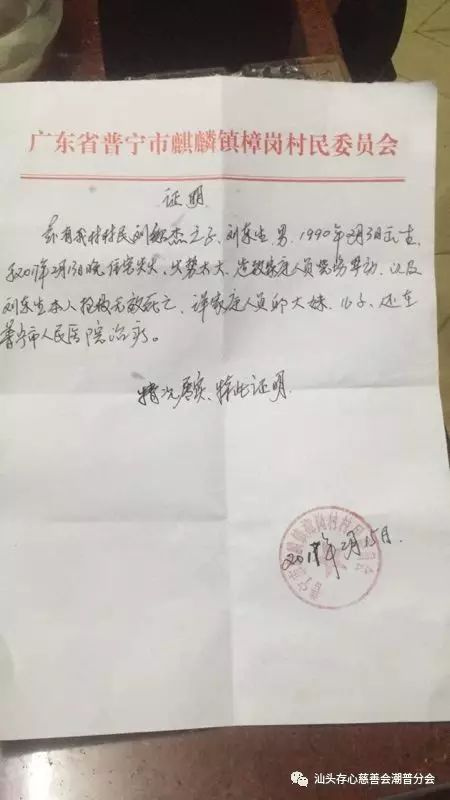 广东省普宁市麒麟镇樟岗村民委员会
证明
兹有我村村民刘 杰之子、刘东生 男、1990年 月3日出生,
于2017年2月13日晚住宅失火、火势太大、造致家庭人员当场 、以及
刘东生本人抢救无效死亡、详家庭人员邱大妹、儿子、还在
普宁市人民医院治疗。
情况属实、特此证明
2017年2月15日.
汕头存心慈善会潮普分会